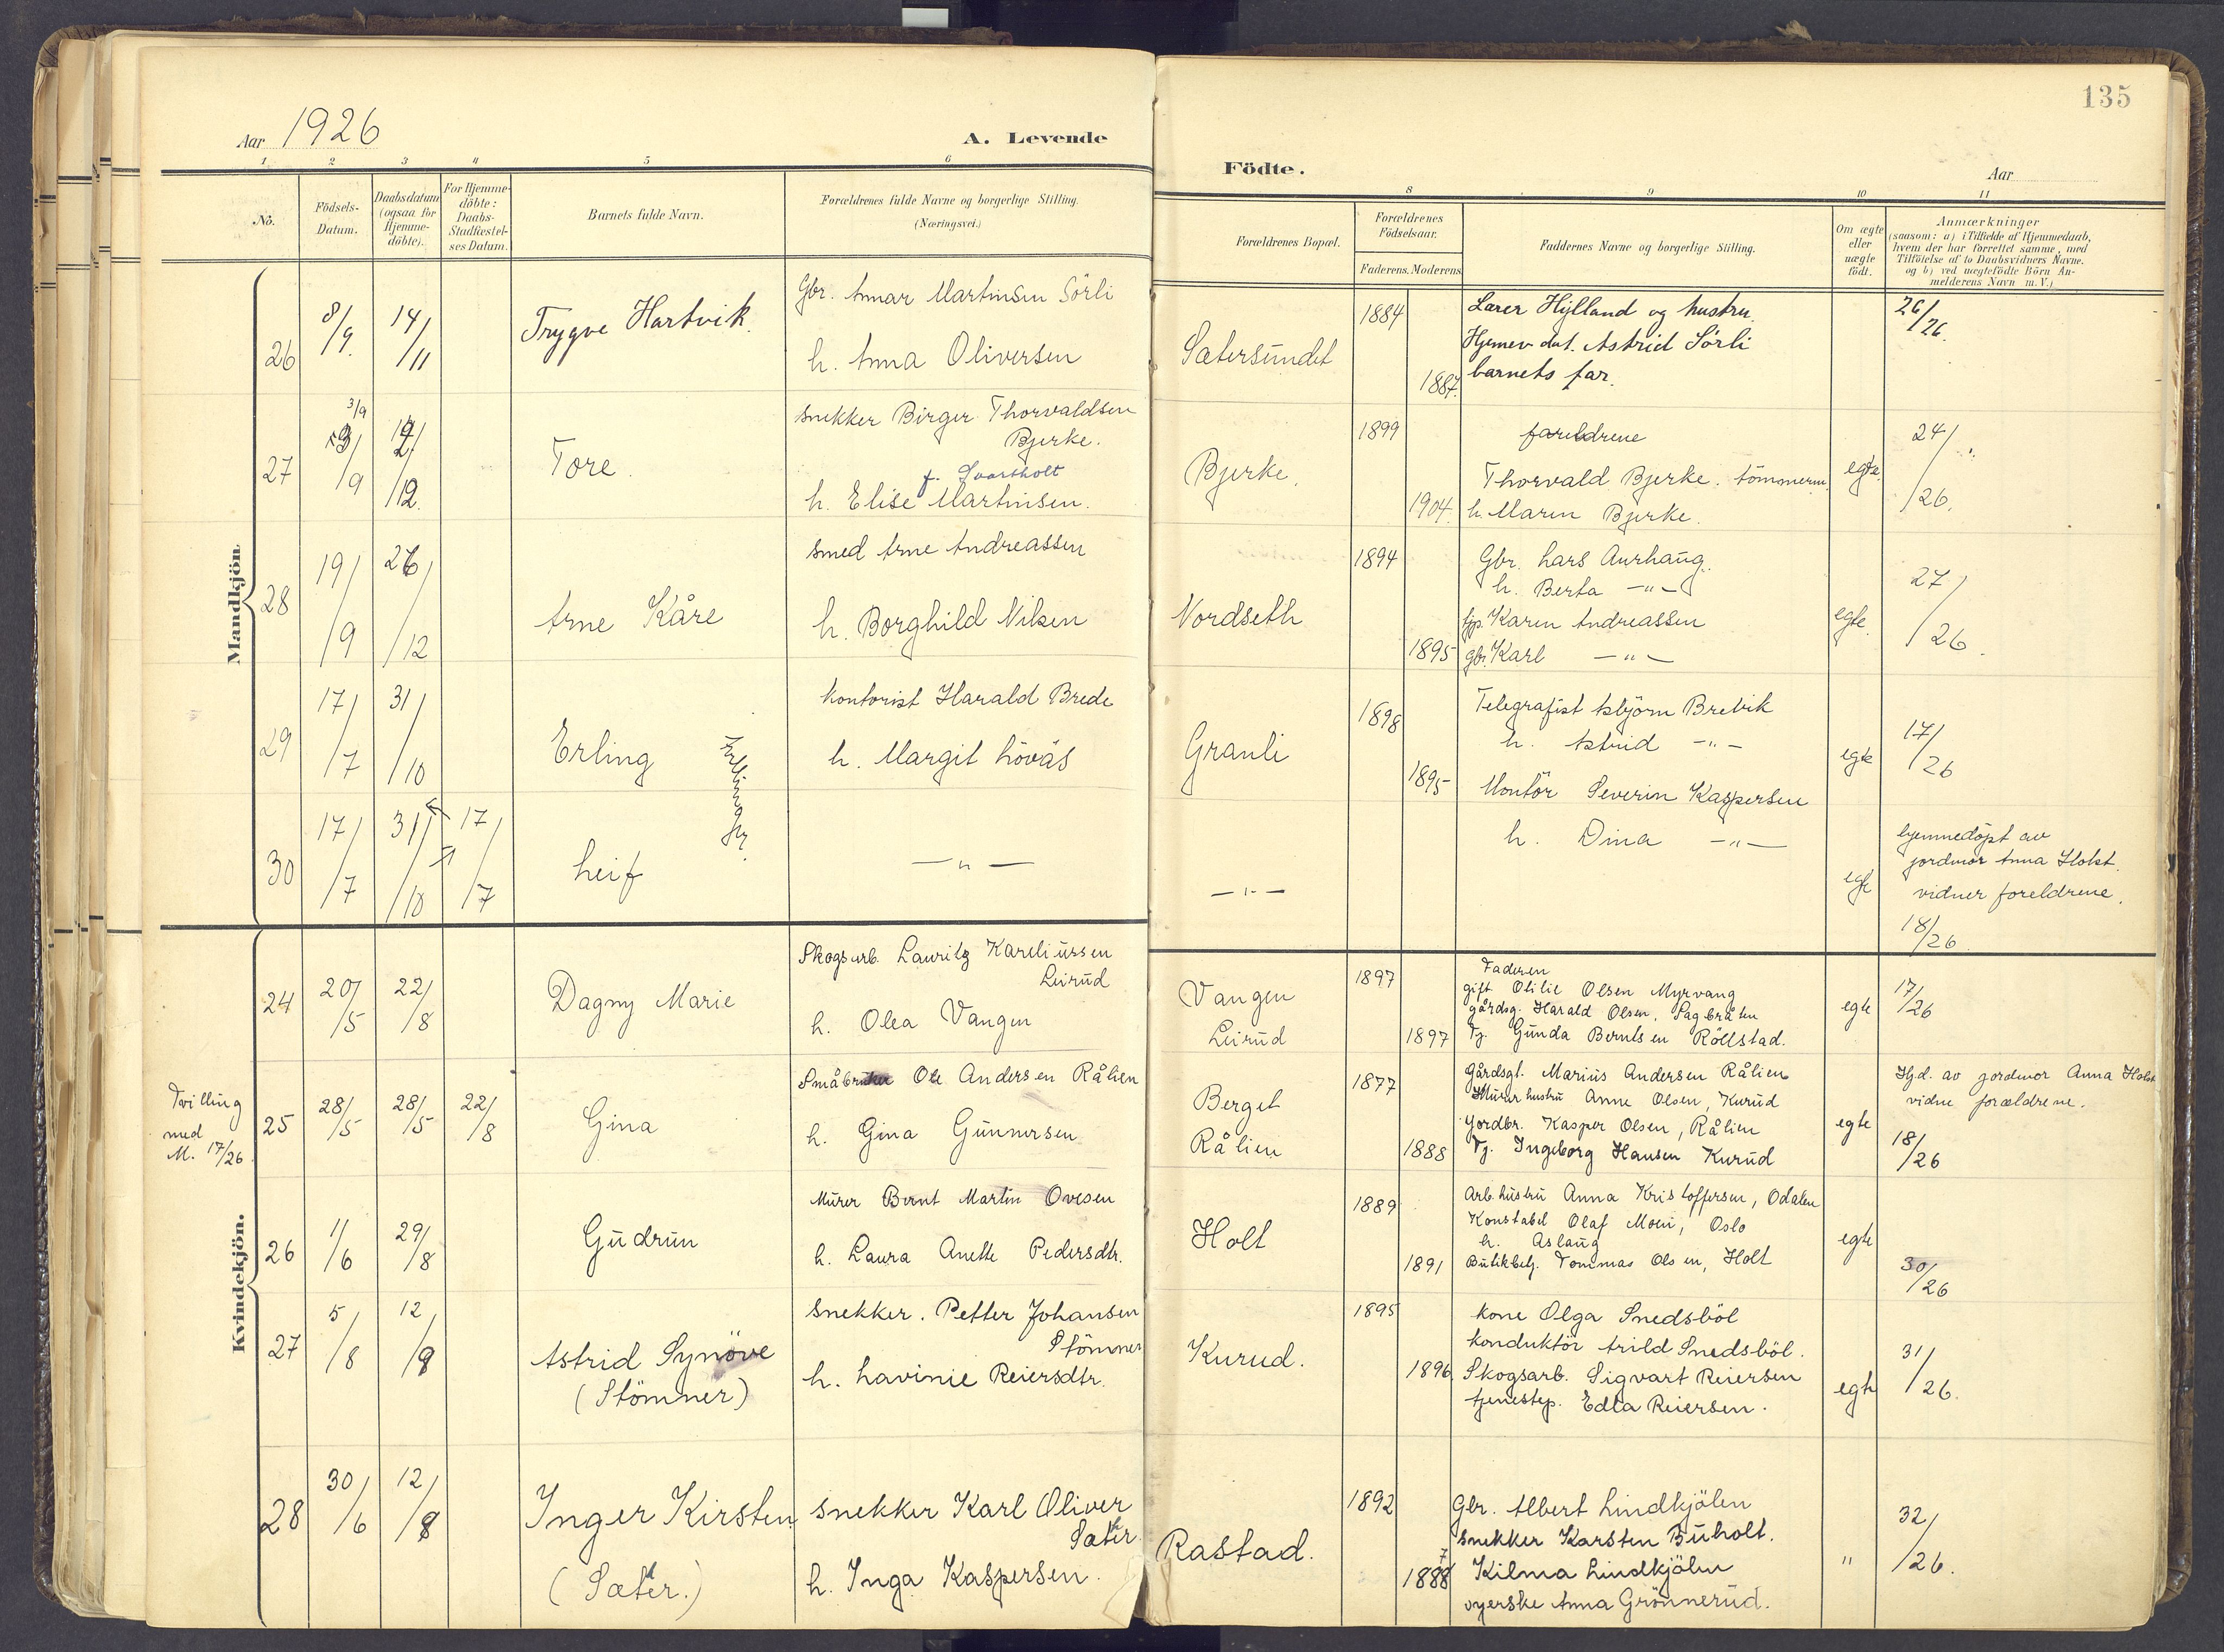 135
Aar 1926
A. Levende
Födte.
Aar
1 2 3 4 5 6
8 9 10 11
No.
Födsels-Datum.
Daabsdatum (ogsaa for Hjemme-döbte).
For Hjemme-döbte: Daabs-Stadfæstel-ses Datum.
Barnets fulde Navn.
Forældrenes fulde Navne og borgerlige Stilling.
(Næringsvei.)
Forældrenes Bopæl.
Forældrenes Födselsaar.
Faderens. Moderens
Faddernes Navne og borgerlige Stilling.
Om ægte eller uægte födt.
Anmærkninger
(saasom: a) i Tilfælde af Hjemmedaab,
hvem der har forrettet samme, med
Tilföielse af to Daabsvidners Navne.
og b) ved uægtefödte Börn An-
melderens Navn m. V.)
Mandkjön.
26 8/9. 14/11
Trygve Hartvik.
Gbr. Annar Martinsen Sörli
h. Anna Oliversen
Sætersundet
1884
1887.
Lærer Hylland og hustru.
Hjemev. dat. Astrid Sörli
barnets far.
26/26.
27 3/9 /9 /12
Tore.
snekker Birger Thorvaldsen
Bjerke.
f. Svartholt
h. Elise Martinsen.
Bjerke.
1899
1904.
foreldrene
Thorvald Bjerke. tömmerm.
h. Maren Bjerke.
egte.
24/26.
28 19/9 26/12
Arne Kåre
smed Arne Andreassen
h. Borghild Nilsen
Nordseth
1894
1895
Gbr. Lars Aurhaug.
h. Berta -"-
tjp. Karen Andreassen
gbr. Karl -"-
egte.
27/26.
29 17/7 31/10
Erling
kontorist Harald Brede
h. Margit Lövås
Granli
1898
1895
Telegrafist Asbjörn Brevik
h. Astrid -"-
Montör Severin Kaspersen
h. Dina -"-
egte
17/26
30 17/7 31/10 17/7
Leif
-"-
-"-
egte
hjemmedöpt av
jordmor Anna Holst.
vidner foreldrene.
18/26.
Kvindekjön.
24 20/5 22/8
Dagny Marie
Skogsarb. Lauritz Kareliussen
Leirud
h. Olea Vangen
Vangen
Leirud
1897
1897
Faderen
gift Olilie Olsen Myrvang
gårdsg. Harald Olsen, Sagbråten
Tj. Gunda Berntsen Röllstad.
egte
17/26
Tvilling
med
M. 17/26.
25 28/5 28/5 22/8
Gina
Småbruker Ole Andersen Rålien
h. Gina Gunnersen
Berget
Rålien
1877
1888
Gårdsgt. Marius Andersen Rålien
Murer hustru Anne Olsen, Kurud
Jordbr. Kasper Olsen, Rålien
Tj. Ingeborg Hansen Kurud
egte
Hjd. av jordmor Anna Holst
vidne forældrene.
18/26
26 1/6 29/8
Gudrun
Murer Bernt Martin Ovesen
h. Laura Anette Pedersdtr.
Holt
1889
1891
Arb. hustru Anna Kristoffersen, Odalen
Konstabel Olaf Moen, Oslo
h. Aslaug
Butikbetj. Tommas Olsen, Holt
egte
30/26
27 5/8 12/9
Astrid Synöve
(Stömner)
snekker. Petter Johansen
Stömner
h. Lavinie Reiersdtr.
Kurud.
1895
1896
kone Olga Snedsböl
konduktör Arild Snedsböl.
Skogsarb. Sigvart Reiersen
tjenestep. Edla Reiersen.
egte
31/26.
28 30/6 12/
Inger Kirsten
(Sæter.)
snekker Karl Oliver
Sæter.
h. Inga Kaspersen.
Rastad.
1892
1888
7
Gbr. Albert Lindkjölen
snekker Karsten Buholt.
Kilma Lindkjölen
syerske Anna Grönnerud.
"
32/26.